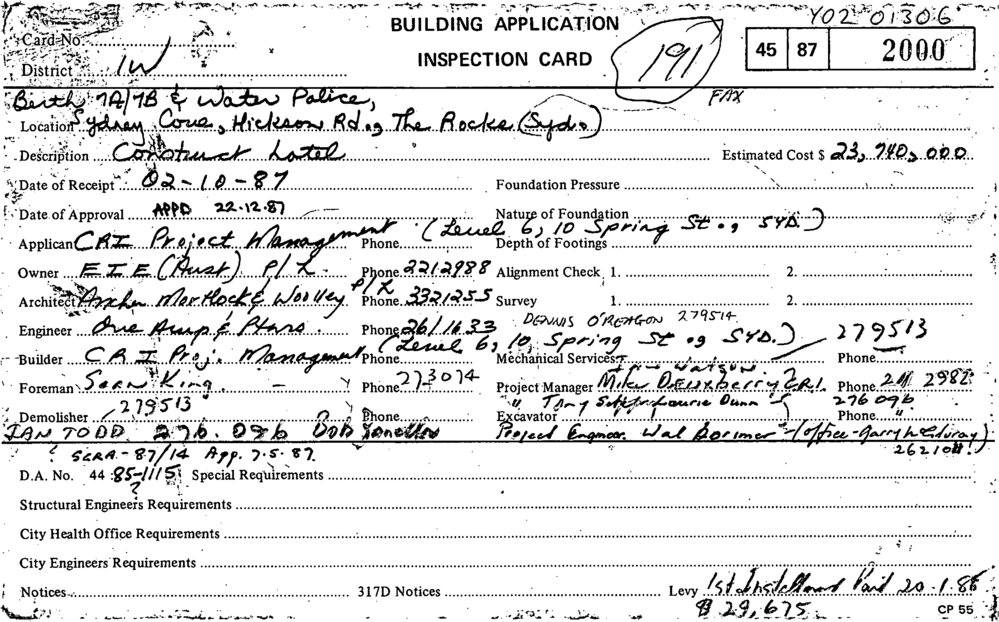 BUILDING APPLICATION Y02 01306
Card No.
INSPECTION CARD 191 45 87 2000
District IW
FAX
Berth 7A/7B & Water Police,
Location Sydney Cove, Hickson Rd., The Rocks (Syd.)
Description Construct hotel Estimated Cost $ 23,740,000
Date of Receipt 02-10-87 Foundation Pressure
Date of Approval APPD 22.12.87 Nature of Foundation
Applicant CRI Project Management Phone (Level 6, 10 Spring St., SYD.) Depth of Footings
Owner EIE (Aust) P/L. Phone 2212988 Alignment Check 1. 2.
Architect Ancher Mortlock & Woolley P/L Phone 3321255 Survey 1. 2.
DENNIS O'REAGON 279514
Engineer Ove Arup & Ptnrs. Phone 261 1633
(Level 6, 10, Spring St., SYD.) 279513
Builder CRI Proj. Management Phone Mechanical Services Phone
Watson
Foreman Sean King Phone 273074 Project Manager Mike CRI. Phone 2982
279513 " Tony Laurie Dunn 276096
Demolisher Phone Excavator Phone "
IAN TODD 276.096 Bob Project Engineer Wal Dorimer (office - Garry
262104
SCRA - 87/14 App. 7.5.87
D.A. No. 44 85-1115 Special Requirements
?
Structural Engineers Requirements
City Health Office Requirements
City Engineers Requirements
Notices 317D Notices Levy 1st Instalment Paid 20.1.88
$ 29,675 CP 55